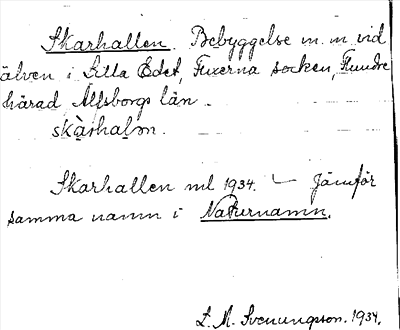 Skarhallen. Bebyggelse m. m vid
älven i Lilla Edet, Fuxerna socken, Flundre
härad Älfsborgs län.
skàrhalǝn.
Skarhallen ml 1934. – Jämför
samma namn i Naturnamn.
L. M. Svenungsson. 1934.